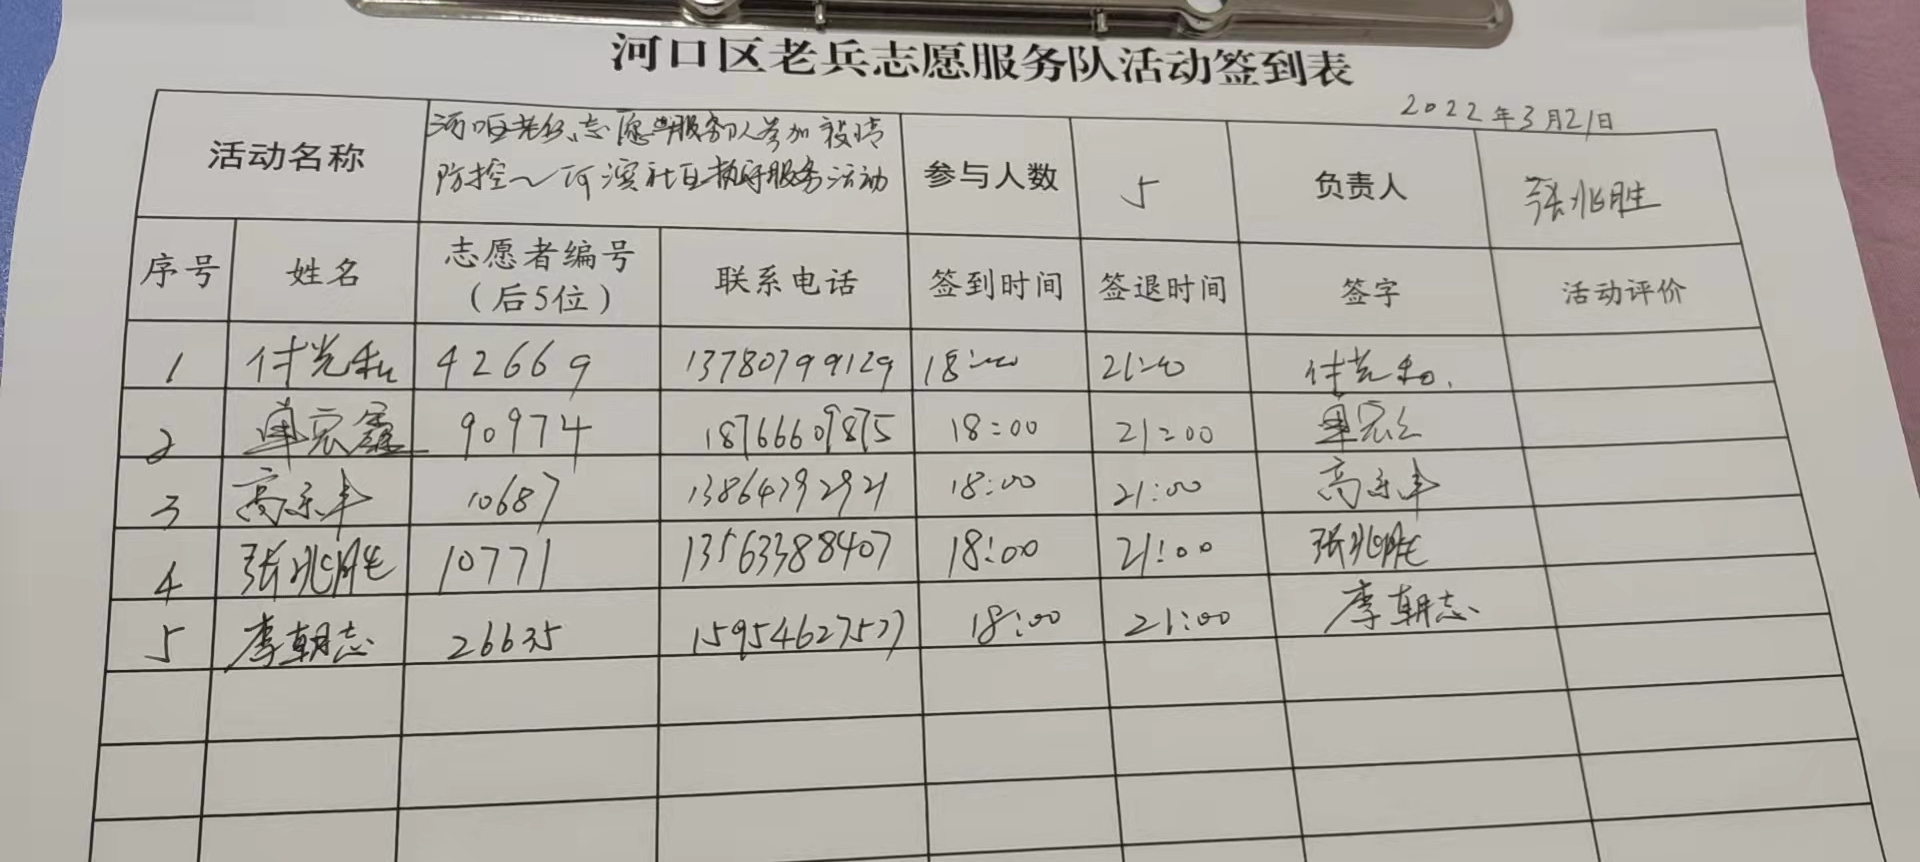 河口区老兵志愿服务队活动签到表
2022年3月21日
活动名称 河口区老兵志愿服务队参加疫情 参与人数 5 负责人 张兆胜
防控~河滨社区执守服务活动
序号 姓名 志愿者编号 联系电话 签到时间 签退时间 签字 活动评价
（后5位）
1 付光和 42669 13780799129 18:00 21:00 付光和.
2 单宏鑫 90974 18766609875 18:00 21:00 单宏
3 高乐丰 10687 13864792921 18:00 21:00 高乐丰
4 张兆胜 10771 13563388407 18:00 21:00 张兆胜
5 李朝志 26635 15954627577 18:00 21:00 李朝志